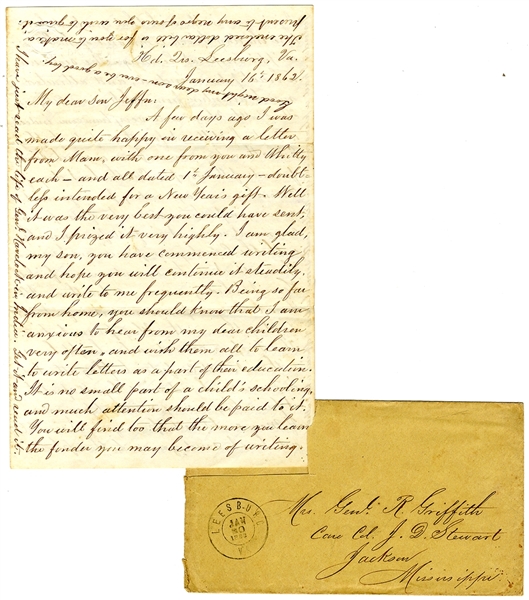 Hd. Qrs. Leesburg, Va.
January 16th 1862.
My dear son Jeffn:
A few days ago I was
made quite happy in receiving a letter
from Mam, with one from you and Whitty
each – and all dated 1st January – doubt-
less intended for a New Year's gift. Well
it was the very best you could have sent,
and I prized it very highly. I am glad,
my son, you have commenced writing
and hope you will continue it steadily,
and write to me frequently. Being so far
from home, you should know that I am
anxious to hear from my dear children
very often, and wish them all to learn
to write letters as a part of their education.
It is no small part of a child's schooling,
and much attention should be paid to it.
You will find too that the more you learn
the fonder you may become of writing.
The enclosed dollar bill is for you to make a
present to any negro of ours you wish to give it.
Good night my dear son – now be a good boy.
I have just read the life of Genl. Havelock in India. Get it and read it.
LEESBURG
JAN
20
1862
Mrs. Genl. R. Griffith
Care Col. J. D. Stewart
Jackson
Mississippi